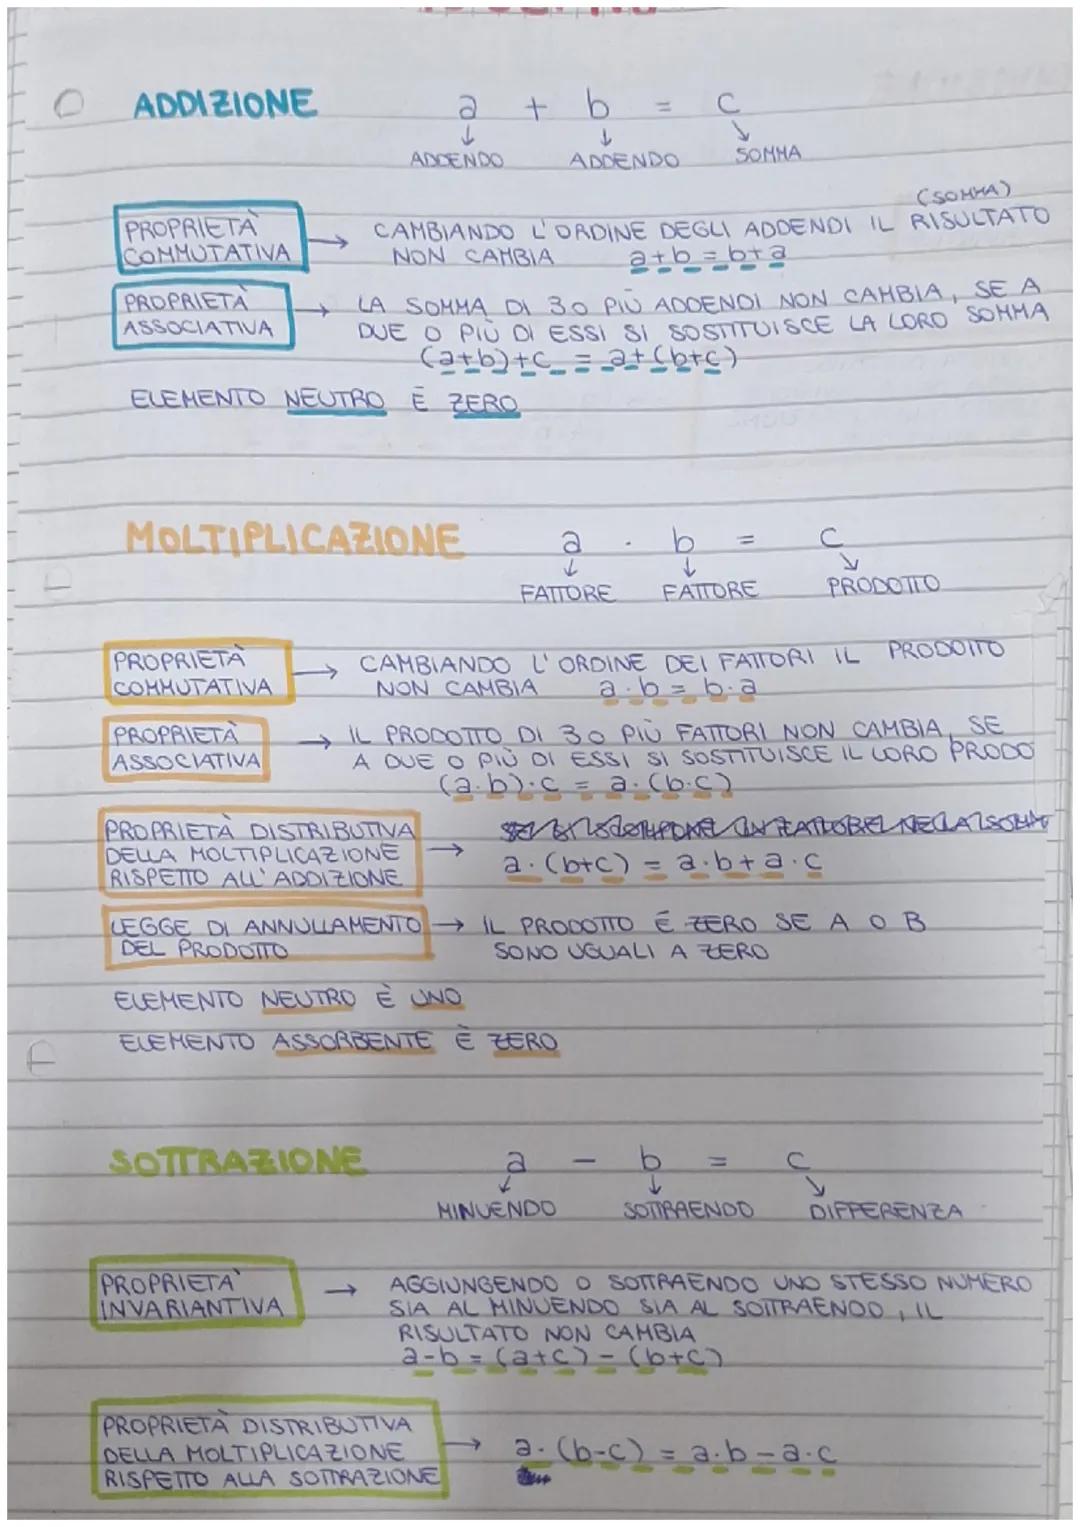 ADDIZIONE a + b = c
ADDENDO ADDENDO SOMMA
(SOMMA)
PROPRIETÀ COMMUTATIVA → CAMBIANDO L'ORDINE DEGLI ADDENDI IL RISULTATO
NON CAMBIA a+b=b+a
PROPRIETÀ ASSOCIATIVA → LA SOMMA DI 3 O PIÙ ADDENDI NON CAMBIA, SE A
DUE O PIÙ DI ESSI SI SOSTITUISCE LA LORO SOMMA
(a+b)+c = a+(b+c)
ELEMENTO NEUTRO È ZERO
MOLTIPLICAZIONE a · b = c
FATTORE FATTORE PRODOTTO
PROPRIETÀ COMMUTATIVA → CAMBIANDO L'ORDINE DEI FATTORI IL PRODOTTO
NON CAMBIA a·b = b·a
PROPRIETÀ ASSOCIATIVA → IL PRODOTTO DI 3 O PIÙ FATTORI NON CAMBIA, SE
A DUE O PIÙ DI ESSI SI SOSTITUISCE IL LORO PRODO
(a·b)·c = a·(b·c)
PROPRIETÀ DISTRIBUTIVA
DELLA MOLTIPLICAZIONE → a·(b+c) = a·b+a·c
RISPETTO ALL'ADDIZIONE
LEGGE DI ANNULLAMENTO → IL PRODOTTO È ZERO SE A O B
DEL PRODOTTO SONO UGUALI A ZERO
ELEMENTO NEUTRO È UNO
ELEMENTO ASSORBENTE È ZERO
SOTTRAZIONE a - b = c
MINUENDO SOTTRAENDO DIFFERENZA
PROPRIETA' → AGGIUNGENDO O SOTTRAENDO UNO STESSO NUMERO
INVARIANTIVA SIA AL MINUENDO SIA AL SOTTRAENDO, IL
RISULTATO NON CAMBIA
a-b = (a+c) - (b+c)
PROPRIETÀ DISTRIBUTIVA
DELLA MOLTIPLICAZIONE → a·(b-c) = a·b-a·c
RISPETTO ALLA SOTTRAZIONE